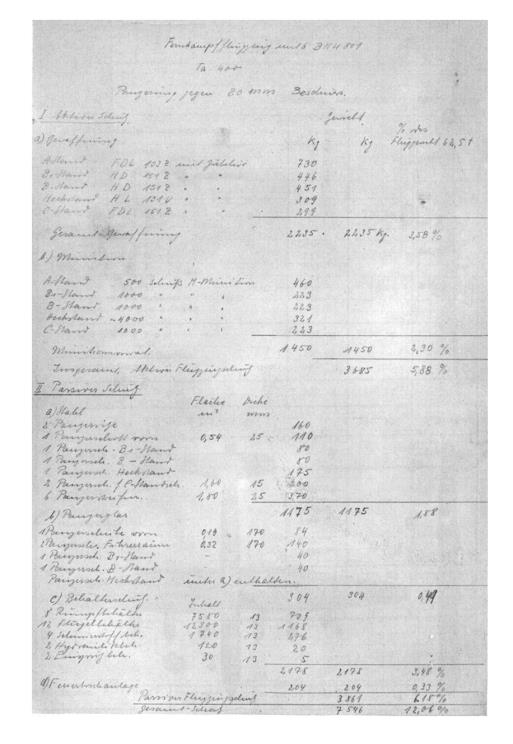 Fernkampfflugzeug mit 6 BMW 801
Ta 400
Panzerung gegen 20 mm Beschuss.
I Aktiver Schutz Gewicht
a) Bewaffnung Kg Kg % des Fluggewicht 62,5 t
A-Stand FDL 103 Z mit Zubehör 730
B1-Stand HD 151 Z " " 446
B-Stand HD 151 Z " " 451
Heckstand HL 131 V " " 309
C-Stand FDL 151 Z " " 299
Gesamt-Bewaffnung 2235 2235 Kg. 3,58 %
b) Munition
A-Stand 500 Schuß M-Munition 460
B1-Stand 1000 " " " 223
B-Stand 1000 " " " 223
Heckstand 4000 " " " 321
C-Stand 1000 " " " 223
1450 1450 2,30 %
Insgesamt, Aktiver Flugzeugschutz 3685 5,88 %
II Passiver Schutz
Fläche Dicke
a) Stahl m² mm
2 Panzersitze 160
1 Panzerschott vorn 0,54 25 110
1 Panzersch. B1-Stand 80
1 Panzersch. B-Stand 80
1 Panzersch. Heckstand 175
2 Panzersch. f. C-Stand 1,60 15 200
6 1,80 25 370
1175 1175 1,88
b) Panzerglas
1 Panzerscheibe vorn 0,19 170 84
Panzersch. 0,32 170 140
1 Panzersch. B1-Stand - 40
1 Panzersch. B-Stand 40
Panzersch. Heckstand unter a) enthalten.
304 304 0,49
c) Behälterschutz Inhalt
8 Rumpfbehälter 7580 13
12 Flügelbehälter 12300 13 1168
4 Schmierstoffbeh. 1740 13 276
2 Hydraulikbeh. 120 13 20
2 30 13 5
2178 2178 3,48 %
d) Feuerlöschanlage 204 204 0,33 %
Passiver Flugzeugschutz 3861 6,18 %
Gesamt-Schutz 7546 12,06 %